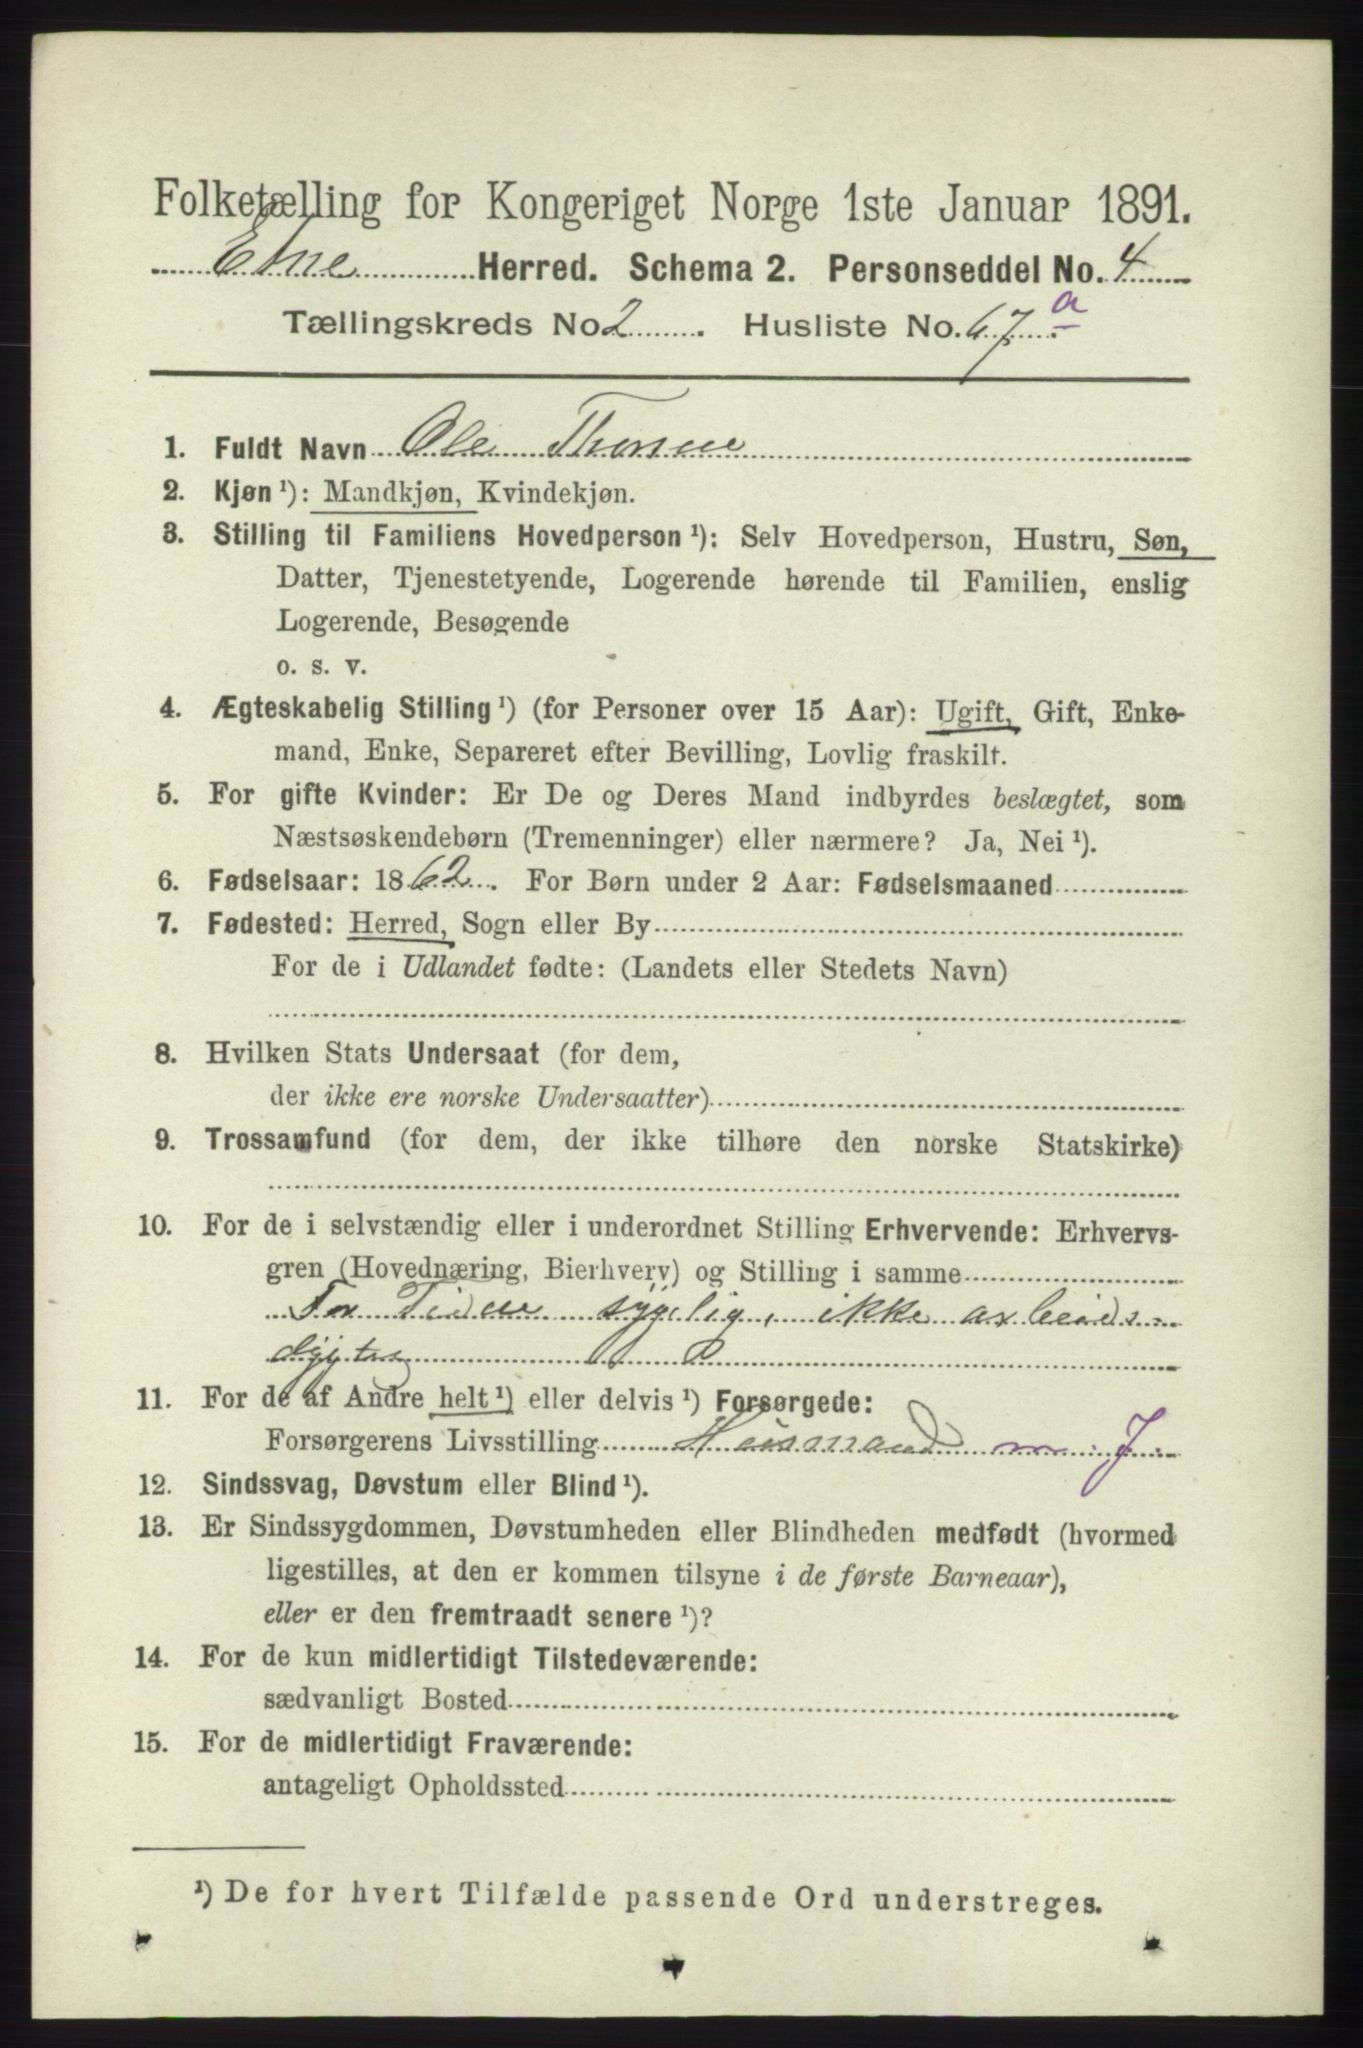 Folketælling for Kongeriget Norge 1ste Januar 1891.
Etne Herred. Schema 2. Personseddel No. 4
Tællingskreds No 2. Husliste No. 67 a
1. Fuldt Navn Ole
2. Kjøn ¹): Mandkjøn, Kvindekjøn.
3. Stilling til Familiens Hovedperson ¹): Selv Hovedperson, Hustru, Søn,
Datter, Tjenestetyende, Logerende hørende til Familien, enslig
Logerende, Besøgende
o. s. v.
4. Ægteskabelig Stilling ¹) (for Personer over 15 Aar): Ugift, Gift, Enke-
mand, Enke, Separeret efter Bevilling, Lovlig fraskilt.
5. For gifte Kvinder: Er De og Deres Mand indbyrdes beslægtet, som
Næstsøskendebørn (Tremenninger) eller nærmere? Ja, Nei ¹).
6. Fødselsaar: 1862. For Børn under 2 Aar: Fødselsmaaned
7. Fødested: Herred, Sogn eller By
For de i Udlandet fødte: (Landets eller Stedets Navn)
8. Hvilken Stats Undersaat (for dem,
der ikke ere norske Undersaatter)
9. Trossamfund (for dem, der ikke tilhøre den norske Statskirke)
10. For de i selvstændig eller i underordnet Stilling Erhvervende: Erhvervs-
gren (Hovednæring, Bierhverv) og Stilling i samme
For Tiden sygelig, ikke arbeids-
dygtig
11. For de af Andre helt ¹) eller delvis ¹) Forsørgede:
Forsørgerens Livsstilling Husmand m. J.
12. Sindssvag, Døvstum eller Blind ¹).
13. Er Sindssygdommen, Døvstumheden eller Blindheden medfødt (hvormed
ligestilles, at den er kommen tilsyne i de første Barneaar),
eller er den fremtraadt senere ¹)?
14. For de kun midlertidigt Tilstedeværende:
sædvanligt Bosted
15. For de midlertidigt Fraværende:
antageligt Opholdssted
¹) De for hvert Tilfælde passende Ord understreges.